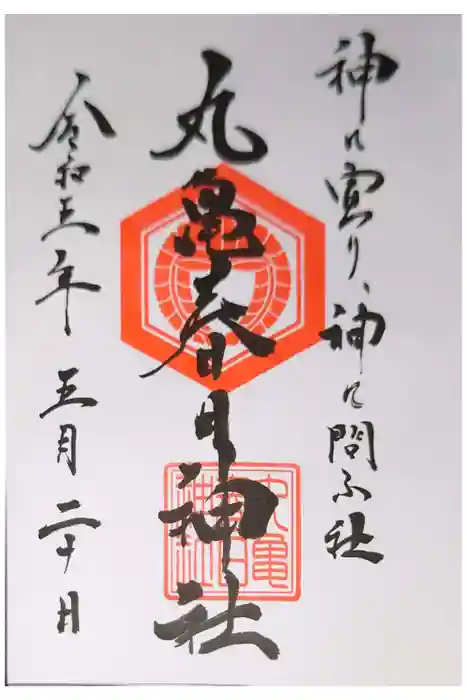 神に寅り、神に問ふ社
丸亀春日神社
丸亀
春日
神社
令和五年 五月 二十日